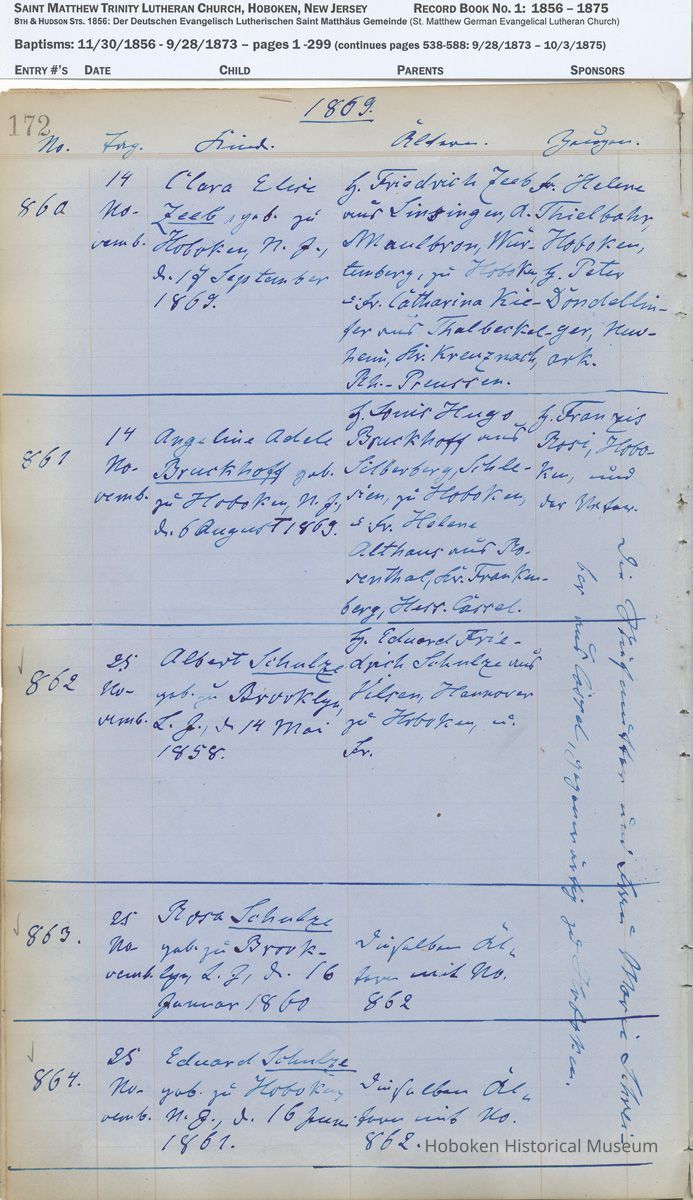 SAINT MATTHEW TRINITY LUTHERAN CHURCH, HOBOKEN, NEW JERSEY RECORD BOOK NO. 1: 1856 – 1875
8TH & HUDSON STS. 1856: Der Deutschen Evangelisch Lutherischen Saint Matthäus Gemeinde (St. Matthew German Evangelical Lutheran Church)
Baptisms: 11/30/1856 - 9/28/1873 – pages 1 -299 (continues pages 538-588: 9/28/1873 – 10/3/1875)
ENTRY #'S DATE CHILD PARENTS SPONSORS
1869.
172
No. Tag. Kind. Ältern. Zeugen.
860
14
No-
vemb.
Clara Elise
Zeeb, geb. zu
Hoboken, N. J.,
d. 17 September
1869.
H. Friedrich Zeeb
aus Linzingen, A.
Maulbron, Wür-
temberg, zu Hoboken
u. Fr. Catharina Kie-
fer aus Thalbeckel-
heim, Kr. Kreuznach,
Rh.- Preussen.
Fr. Helene
Thielbahr,
Hoboken,
H. Peter
Dondellin-
ger, New-
ork.
861
14
No-
vemb.
Angeline Adele
Bruckhoff geb.
zu Hoboken, N. J.,
d. 6 August 1869.
H. Louis Hugo
Bruckhoff aus
Silberberg, Schle-
sien, zu Hoboken,
u. Fr. Helene
Althaus aus Ro-
senthal, Kr. Franken-
berg, Hess. Cassel.
H. Franzis
Rosi, Hobo-
ken, und
der Unterz.
862
25
No-
vemb.
Albert Schulze
geb. zu Brooklyn,
L. J., d. 14 Mai
1858.
H. Eduard Frie-
drich Schulze aus
Vilsen, Hannover
zu Hoboken, u.
Fr.
863.
25
No-
vemb.
Rosa Schulze
geb. zu Brook-
lyn, L. J., d. 16
Januar 1860
Dieselben Äl-
tern mit No.
862
864.
25
No-
vemb.
Eduard Schulze
geb. zu Hoboken,
N. J., d. 16 Juni
1861.
Dieselben Äl-
tern mit No.
862.
Die Stiefmutter und Frau Marie Schrei-
ber aus Cassel, gegenwärtig zu Hoboken.
Hoboken Historical Museum